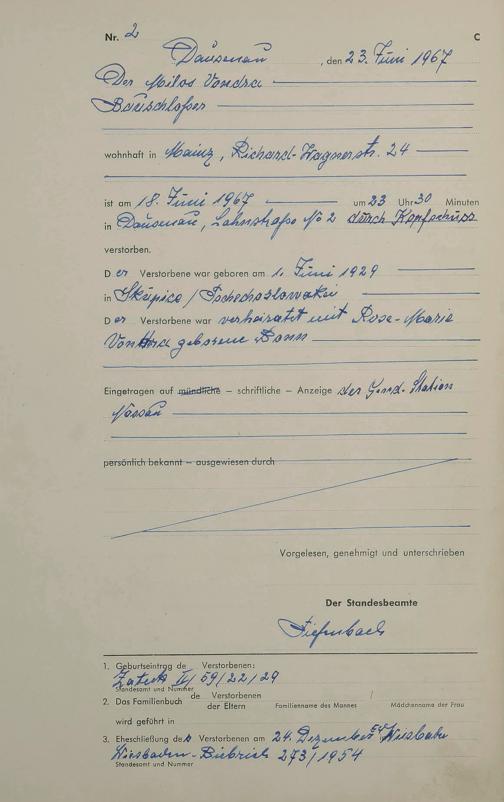 Nr. 2 C
Dausenau, den 23. Juni 1967
Der Milos Vondra
Bauschlosser
wohnhaft in Mainz, Richard-Wagnerstr. 24
ist am 18. Juni 1967 um 23 Uhr 30 Minuten
in Dausenau, Lahnstraße No 2 durch Kopfschuss
verstorben.
Der Verstorbene war geboren am 1. Juni 1929
in Skupice / Tschechoslowakei
Der Verstorbene war verheiratet mit Rose-Marie
Vondra geborene Bonn
Eingetragen auf mündliche – schriftliche – Anzeige der Gend. Station
Nassau
persönlich bekannt – ausgewiesen durch
Vorgelesen, genehmigt und unterschrieben
Der Standesbeamte
Tiefenbach
1. Geburtseintrag de Verstorbenen:
II/59/22/29
Standesamt und Nummer
2. Das Familienbuch de Verstorbenen / der Eltern
Familienname des Mannes Mädchenname der Frau
wird geführt in
3. Eheschließung des Verstorbenen am 24. Dezember 54 Wiesbaden
Wiesbaden-Biebrich 273/1954
Standesamt und Nummer